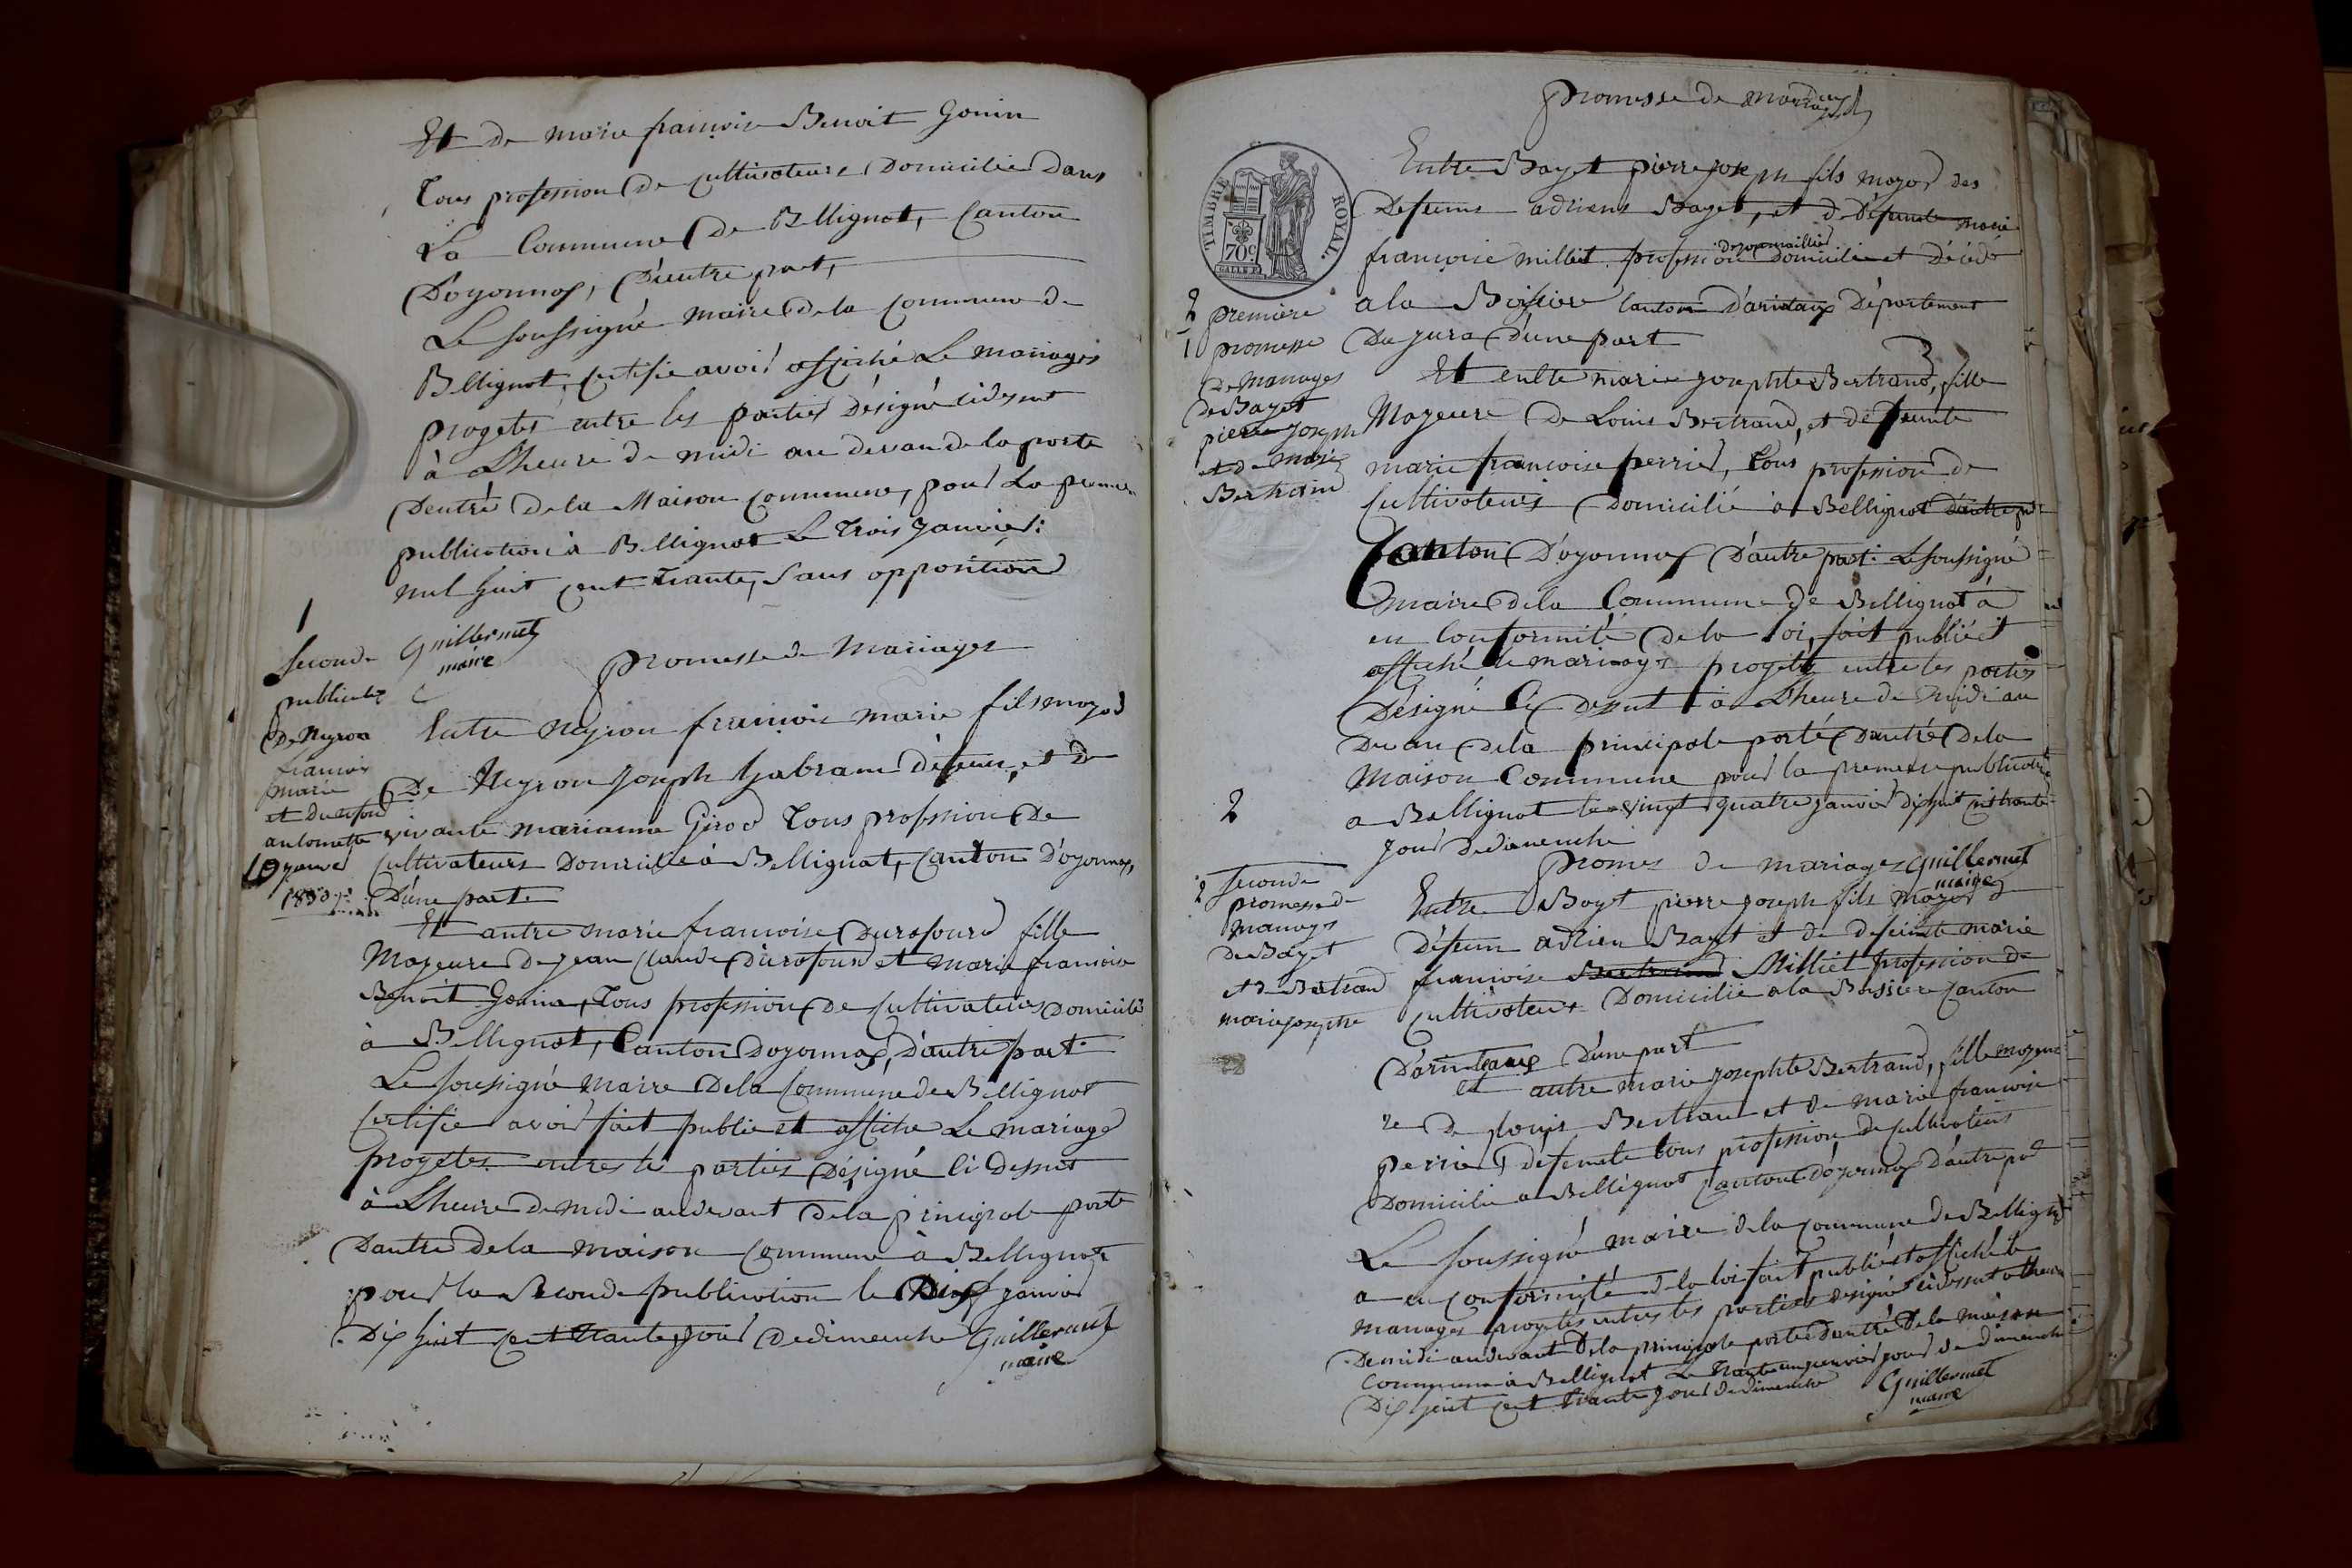 Et de marie francoise Benoit Gonin
Tous profession de cultivateurs Domicilié Dans
La Commune De Bellignat, Canton
D'oyonnax, D'autre part,
Le soussigné maire de la commune de
Bellignat, certifie avoir affiché Le mariages
progetés entre les parties désigné cidesut
à Lheure de midi au devan de la porte
Dentré de la Maison commune, pour La premiere
publication à Bellignat Le Trois Janvier
mil huit cent trante, Sans opposition
1
Seconde
publication
De Neyron
francois
marie
et durafour
antoinette
10 janvier
1830
Guillermet
maire
promesse de Mariages
Entre Neyron francois marie fils mayor
De Neyron Joseph Gabram défeun, et de
vivante marianne Girod Tous profession De
Cultivateurs Domicilié à Bellignat, Canton D'oyonnax,
D'une part
Et antre marie francoise Durafourd fille
Mayeure de jean Claude Durafour et marie francoise
Benoit Gonin, Tous profession de Cultivateurs Domicilié
à Bellignat, Canton Doyonnax, D'autre part
Le soussigné Maire De la Commune de Bellignat
Certifie avoir fait publié et affiché Le mariage
progetés entres les parties Désigné Ci Dessut
à Lheure de midi au devant De la principale porte
Dantré de la maison Commune à Bellignat
pour la Seconde publication le Dix janvier
Dix huit cent trante, jour de dimenche Guillermet
maire
promesse de mariages
TIMBRE ROYAL
70c
Entre Bayet pierre joseph fils mayor des
Defeuns adriens Bayet, et de Défunte marie
francoise millet profession de journaillier Domicilié et Décédé
a la Boissiere Canton D'arintaux Département
Du jura d'une part
2
1
premiere
promesse
de mariages
de Bayet
pierre joseph
et de marie
Bertrand
Et entre marie josephte Bertrand, fille
Mayeure de Louis Bertrand, et defeunte
marie francoise perrier, tous profession de
Cultivateurs Domicilié à Bellignat D'autre part
Canton D'oyonnax D'autre part Le soussigné
maire de la Commune de Bellignat à
en conformité de la loi, fait publié et
affiché le mariages progetés entre les parties
Désigné Ci dessut à Lheure de midi au
Devan de la principale porte Dantré De la
Maison Commune pour la premiere publication
a Bellignat le vingt quatre janvier dixhuit cent trante
jour De dimenche
2
promes de mariages Guillermet
maire
2 Seconde
promesse de
mariages
de Bayet
et de Bertrand
marie josephte
Entre Bayet pierre joseph fils Mayor
Défeun adrien Bayet et de defeunte marie
francoise Bertrand Milliet profession de
Cultivateurs Domicilié a la Boissiere Canton
D'arintaux D'une part
et antre marie josephte Bertrand, fille mayeu
re De Louis Bertrand et de marie francoise
perrier, defeunte tous profession de Cultivateurs
Domicilié a Bellignat Canton d'oyonnax D'autre part
Le soussigné maire de la commune de Bellignat
a en conformité de la loi fait publié et affiché le
mariages progetés entres les parties désigné ci dessut a Lheure
De midi au devant De la principale porte Dantré De la maison
Commune à Bellignat Le trante un janvier jour de dimenche
Dix huit cent trante jour De dimenche Guillermet
maire